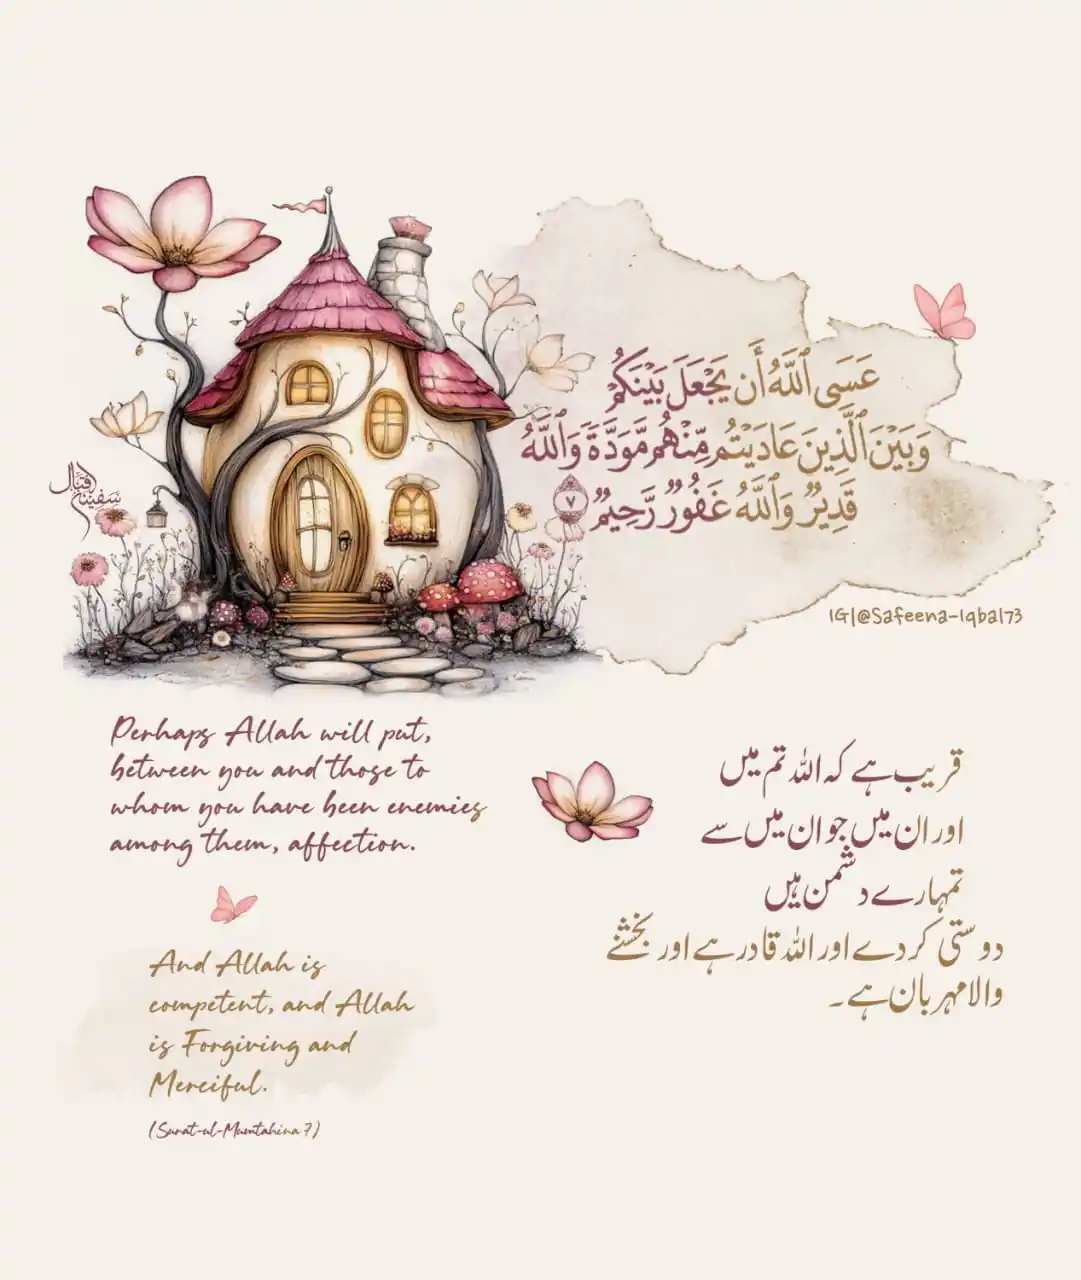 عَسَى ٱللَّهُ أَن يَجْعَلَ بَيْنَكُمْ
وَبَيْنَ ٱلَّذِينَ عَادَيْتُم مِّنْهُم مَّوَدَّةً وَٱللَّهُ
قَدِيرٌ وَٱللَّهُ غَفُورٌ رَّحِيمٌ ٧
سفینہ اقبال
IG|@Safeena-Iqbal73
Perhaps Allah will put,
between you and those to
whom you have been enemies
among them, affection.
And Allah is
competent, and Allah
is Forgiving and
Merciful.
(Surat-ul-Mumtahina 7)
قریب ہے کہ اللہ تم میں
اور ان میں جو ان میں سے
تمہارے دشمن ہیں
دوستی کردے اور اللہ قادر ہے اور بخشنے
والا مہربان ہے۔